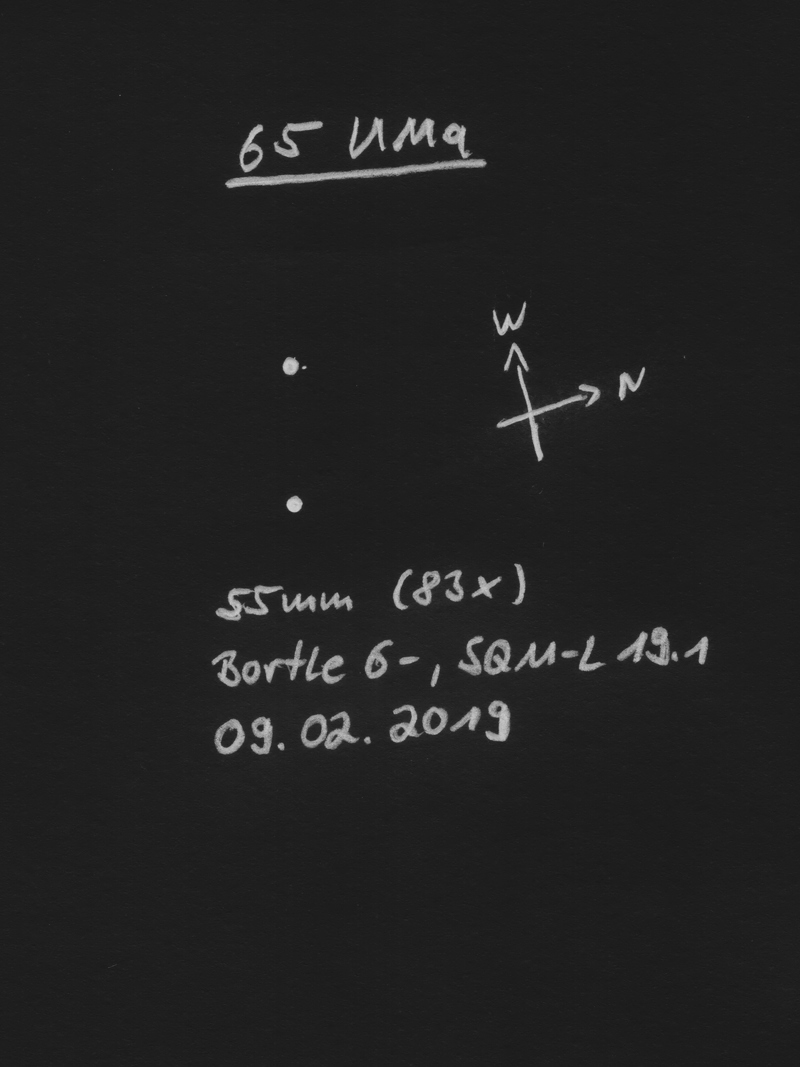 65 UMa
W
N
55mm (83x)
Bortle 6-, SQM-L 19.1
09.02.2019